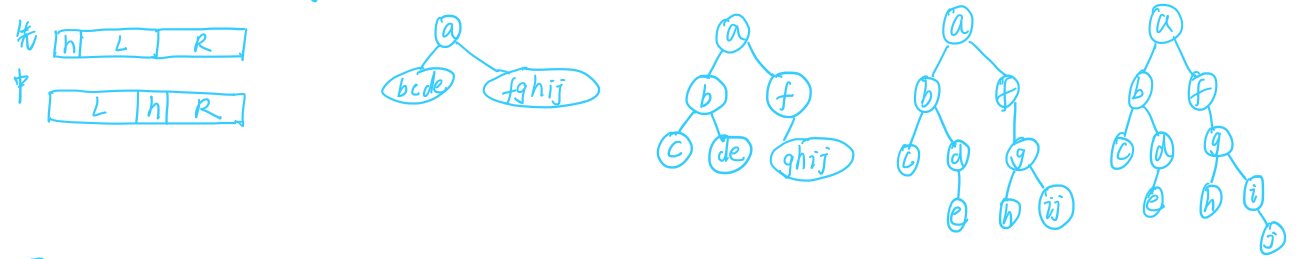 先 h L R
中 L h R
a
bcde fghij
a
b f
c de ghij
a
b f
c d g
e h ij
a
b f
c d g
e h i
j